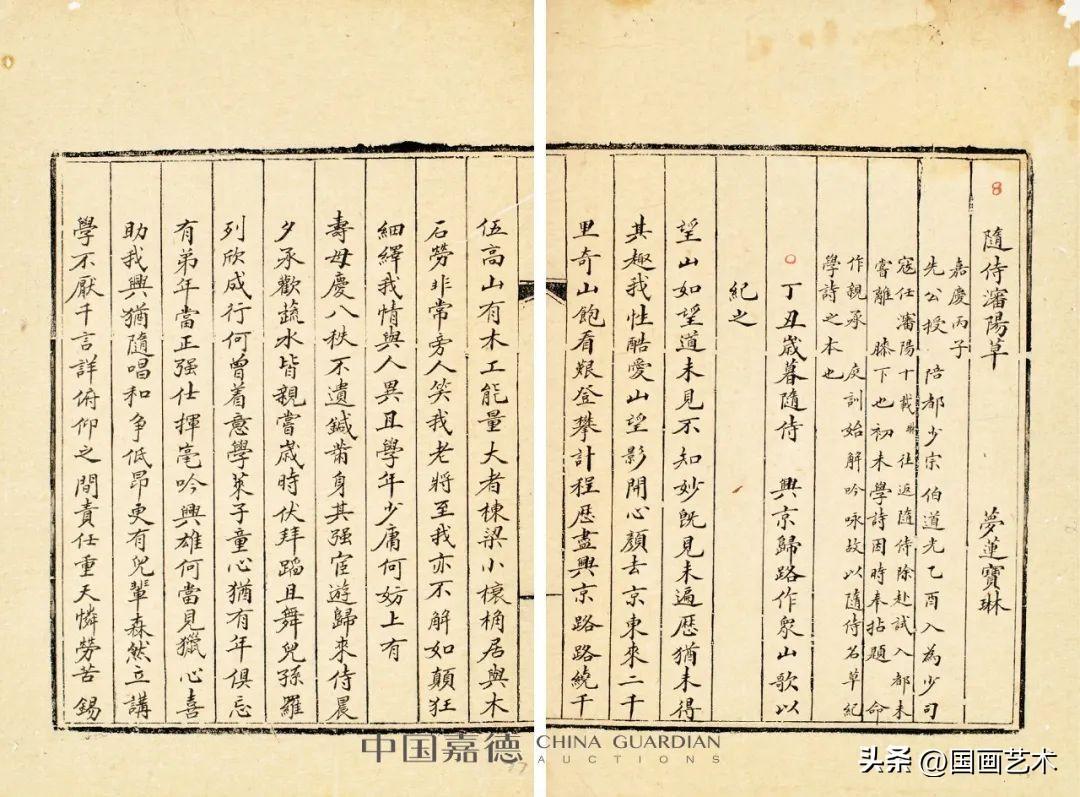 8
隨侍瀋陽草
夢蓮寶琳
嘉慶丙子
先公授 陪都少宗伯道光乙酉入為少司
寇任瀋陽十載 往返隨侍除赴試入都未
嘗離膝下也初未學詩因時奉拈題命
作親承 庭訓始解吟咏故以隨侍名草紀
學詩之本也
丁丑歲暮隨侍 興京歸路作眾山歌以
紀之
望山如望道未見不知妙既見未遍歷猶未得
其趣我性酷愛山望影開心顏去京東來二千
里奇山飽看艱登攀計程歷盡興京路路繞千
伍高山有木工能量大者棟梁小榱桷居與木
石勞非常旁人笑我老將至我亦不解如顛狂
細繹我情與人異且學年少庸何妨上有
壽母慶八秩不遺鍼黹身其强宦遊歸來侍晨
夕承歡蔬水皆親嘗歲時伏拜蹈且舞兒孫羅
列欣成行何曾着意學萊子童心猶有年俱忘
有弟年當正强仕揮毫吟興雄何當見獵心喜
助我興猶隨唱和爭低昂更有兒輩森然立講
學不厭千言詳俯仰之間責任重天憐勞苦錫
中国嘉德 CHINA GUARDIAN
AUCTIONS
头条 @国画艺术